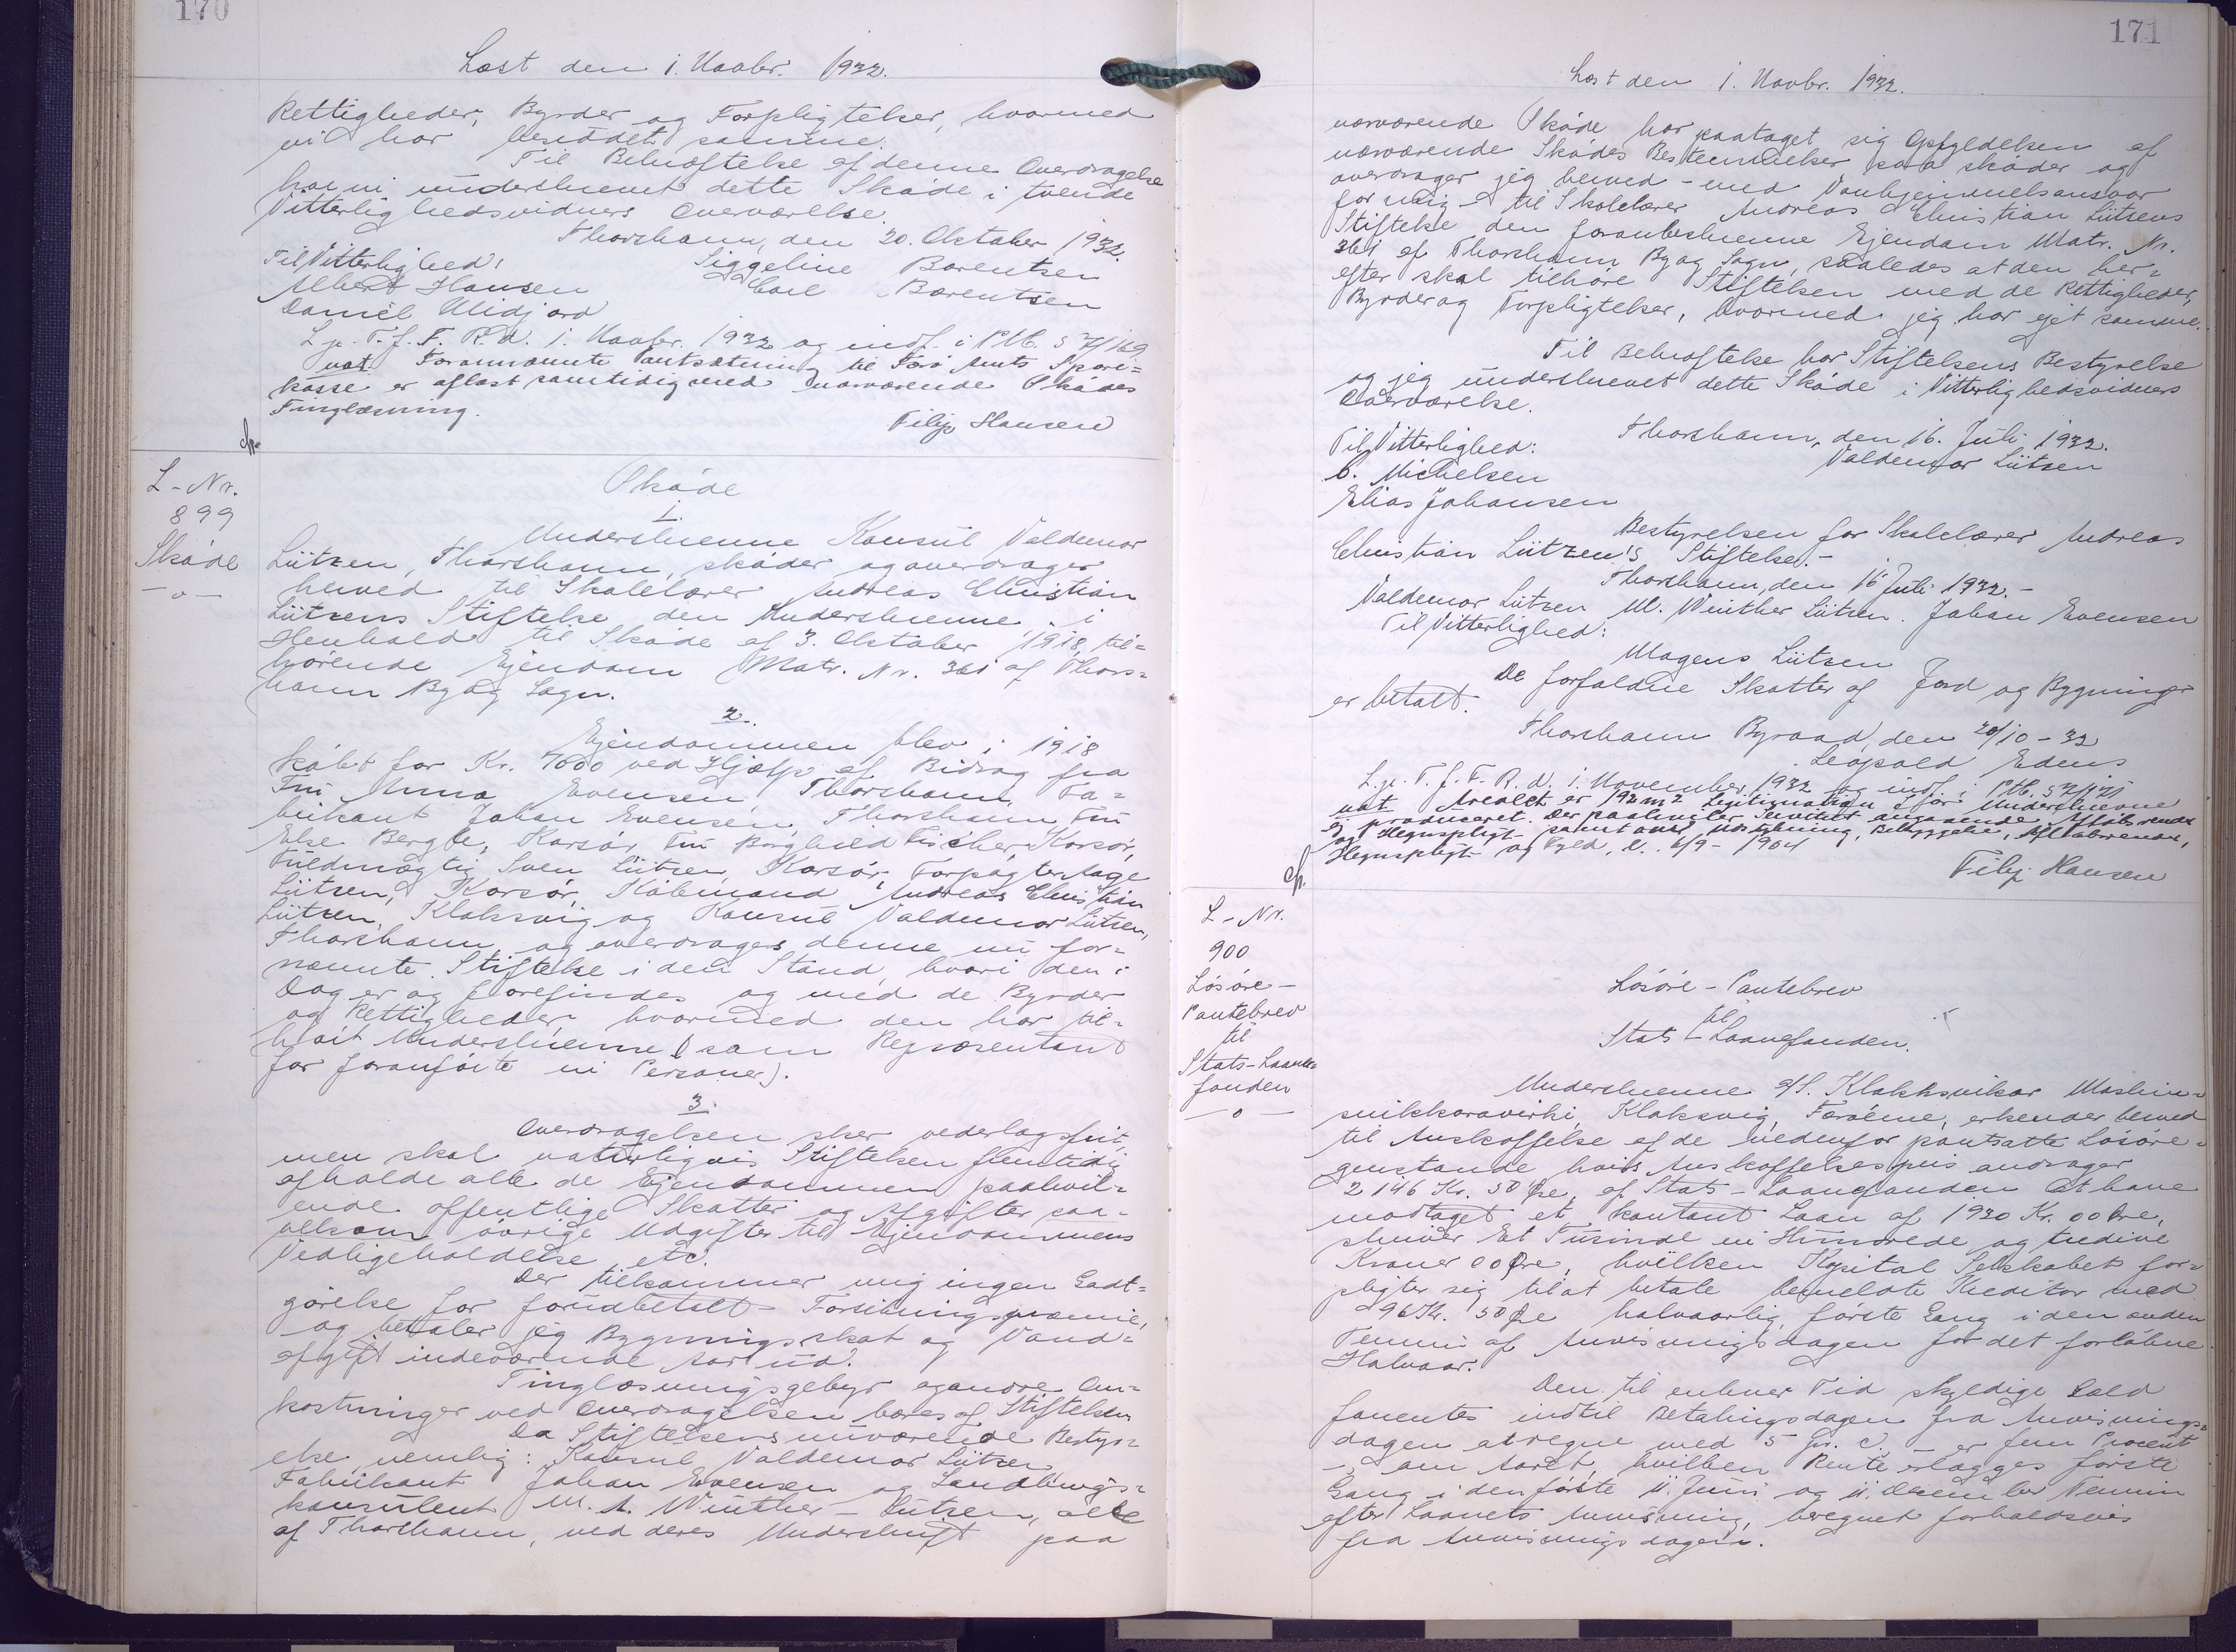 170
Læst den 1. Novbr. 1932.
Rettigheder, Byrder og Forpligtelser, hvormed
vi har besiddet samme.
Til Bekræftelse af denne Overdragelse
har vi underskrevet dette Skøde i tvende
Vitterlighedsvidners Overværelse.
Thorshavn, den 20. Oktober 1932.
Til Vitterlighed: Siggeline Barentsen
Albert Hansen Carl Barentsen
Daniel Midjord
L. p. T. f. F. R. d. 1. Novbr. 1932 og indf. i Ptb. S 7/169
not. Forannævnte Pantsætning til Færø Amts Spare=
kasse er aflæst samtidig med nærværende Skødes
Tinglæsning.
Filip Hansen
L - Nr.
899
Skøde
—o—
Skøde
1.
Underskrevne Konsul Valdemar
Lützen, Thorshavn, skøder og overdrager
herved til Skolelærer Andreas Christian
Lützens Stiftelse den Underskrevne i
Henhold til Skøde af 3. Oktober 1918, til=
hørende Ejendom Matr. Nr. 361 af Thors=
havn By og Sogn.
2.
Ejendommen blev i 1918
købt for Kr. 7000 ved Hjælp af Bidrag fra
Fru Anna Evensen, Thorshavn, Fa=
brikant Johan Evensen, Thorshavn, Fru
Else Bergh, Korsør, Fru Borghild Fischer, Korsør,
Fuldmægtig Sven Lützen, Korsør, Forpagter Aage
Lützen, Korsør, Købmand Andreas Christian
Lützen, Klaksvig og Konsul Valdemar Lützen,
Thorshavn, og overdrages denne nu for=
nævnte Stiftelse i den Stand, hvori den i
Dag er og forefindes og med de Byrder
og Rettigheder, hvormed den har til=
hørt Underskrevne (som Repræsentant
for foranførte ni Personer).
3.
Overdragelsen sker vederlagsfrit,
men skal naturligvis Stiftelsen fremtidig
afholde alle de Ejendommen paahvil=
ende offentlige Skatter og Afgifter saa=
velsom øvrige Udgifter til Ejendommens
Vedligeholdelse etc.
Der tilkommer mig ingen Godt=
gørelse for forudbetalt Forsikringspræmie,
og betaler jeg Bygningsskat og Vand=
afgift indeværende Aar ud.
Tinglæsningsgebyr og andre Om=
kostninger ved Overdragelsen bæres af Stiftelsen
Da Stiftelsens nuværende Bestyr=
else nemlig: Konsul Valdemar Lützen,
Fabrikant Johan Evensen og Landbrugs=
konsulent M. A. Winther - Lützen, alle
af Thorshavn, ved deres Underskrift paa
171
Læst den 1. Novbr. 1932.
nærværende Skøde har paataget sig Opfyldelsen af
nærværende Skødes Bestemmelser paa skøder og
overdrager jeg herved - med Vanhjemmelsansvar
for mig - til Skolelærer Andreas Christian Lützens
Stiftelse den foranbeskrevne Ejendom Matr. Nr.
361 af Thorshavn By og Sogn, saaledes at den her=
efter skal tilhøre Stiftelsen med de Rettigheder,
Byrder og Forpligtelser, hvormed jeg har ejet samme.
Til Bekræftelse har Stiftelsens Bestyrelse
og jeg underskrevet dette Skøde i Vitterlighedsvidners
Overværelse.
Thorshavn, den 16. Juli 1932.
Til Vitterlighed: Valdemar Lützen
C. Michelsen
Elias Johansen
Bestyrelsen for Skolelærer Andreas
Christian Lützen's Stiftelse.-
Thorshavn, den 16 Juli 1932.-
Valdemar Lützen M. Winther Lützen. Johan Evensen
Til Vitterlighed:
Mogens Lützen
De forfaldne Skatter af Jord og Bygninger
er betalt.
Thorshavn Byraad, den 20/10 - 32
Leopold Edens
L. p. T. f. F. R. d. 1. November 1932 og indf. i Ptb. S 7/171
not. Arealet er 192 m2 Legitimation for Underskrevne
ej produceret. Der paahviler Servitut angaaende Afløbsrender
og Hegnspligt samt Bebyggelse, Afløbsrender,
Hegnspligt og Fyld, d. 6/9 - 1904
Filip Hansen
L - Nr.
900
Løsøre -
Pantebrev
til
Stats-Laane=
fonden
—o—
Løsøre - Pantebrev
til
Stats - Laanefonden.
Underskrevne A/S. Klakksvikar Maskin=
snikkaravirki, Klaksvig, Færøerne, erkender herved
til Anskaffelse af de nedenfor pantsatte Løsøre=
genstande hvis Anskaffelsespris andrager
2146 Kr. 50 Øre, af Stats - Laanefonden at have
modtaget et kontant Laan af 1930 Kr. 00 Øre,
skriver Et Tusinde ni Hundrede og tredive
Kroner 00 Øre, hvilken Kapital Selskabet for=
pligter sig til at betale bemeldte Kreditor med
96 Kr. 50 Øre halvaarlig, første Gang i den anden
Termin af Anvisningsdagen for det forløbne
Halvaar.
Den til enhver Tid skyldige Gæld
forrentes indtil Betalingsdagen fra Anvisnings=
dagen at regne med 5 pr. C. - er fem Procent
- om Aaret, hvilken Rente erlægges første
Gang i den første 11. Juni og 11. December Termin
efter Laanets Anvisning, beregnet forholdsvis
fra Anvisningsdagen.